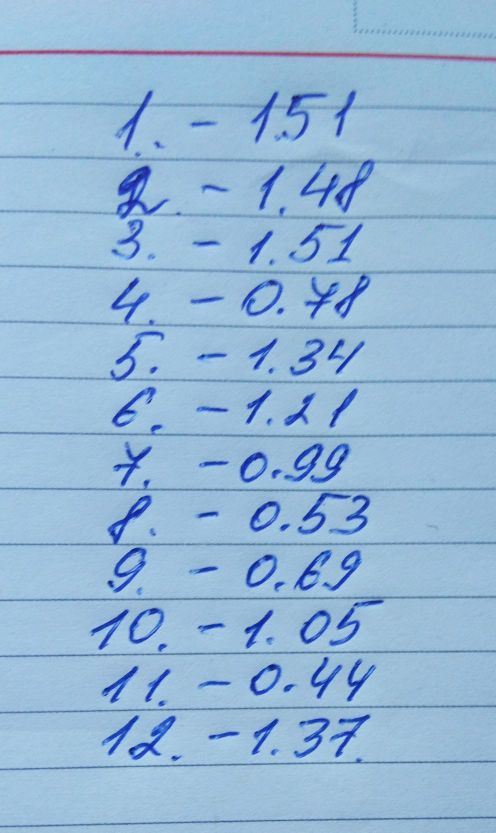 1. - 1.51
2. - 1.48
3. - 1.51
4. - 0.78
5. - 1.34
6. - 1.21
7. - 0.99
8. - 0.53
9. - 0.69
10. - 1.05
11. - 0.44
12. - 1.37.